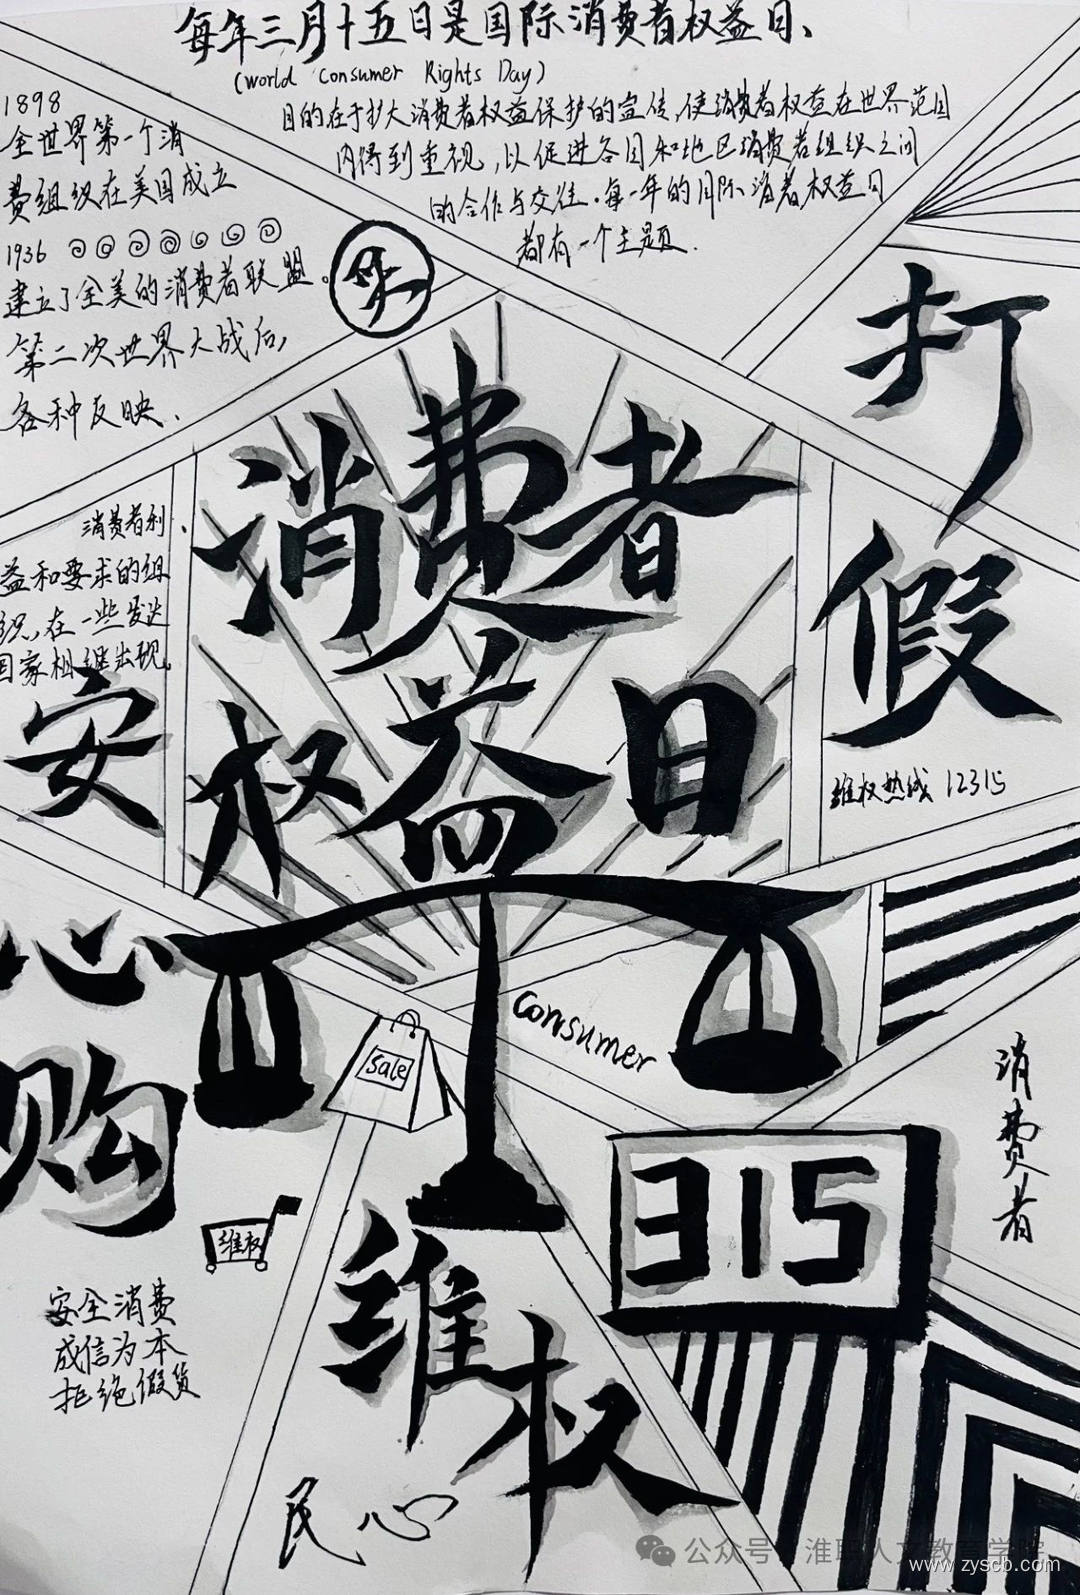 每年三月十五日是国际消费者权益日、
(world Consumer Rights Day)
目的在于扩大消费者权益保护的宣传,使消费者权益在世界范围
内得到重视,以促进各国和地区消费者组织之间
的合作与交往.每一年的国际消者权益日
都有一个主题.
1898
全世界第一个消
费组织在美国成立
1936
建立了全美的消费者联盟。
第二次世界大战后,
各种反映、
消费者利、
益和要求的组
织,在一些发达
国家相继出现。
消费者
权益日
打
假
维权热线 12315
安
心
购
Consumer
Sale
315
消费者
维权
安全消费
成信为本
拒绝假货
维权
民心
公众号 淮职人文教育学院
www.zyscb.com